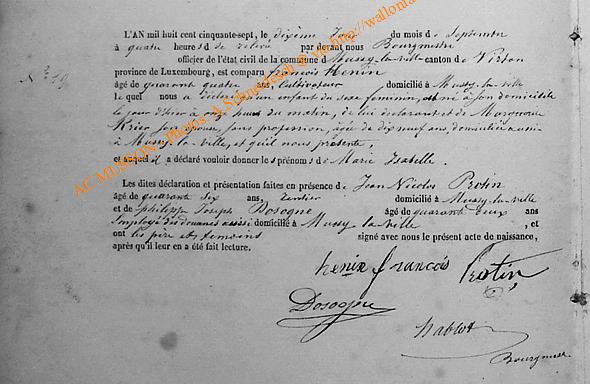 L'AN mil huit cent cinquante-sept, le dixème Jour du mois de Septembre
à quatre heures de relevé par devant nous Bourgmestre
officier de l'état civil de la commune d Mussy-la-ville canton de Virton
N° 19
province de Luxembourg, est comparu François Henin
âgé de quarante quatre ans, Cultivateur , domicilié à Mussy-la-ville
lequel nous a déclaré qu'un enfant du sexe feminin, est né à son domicile
le jour d'hier à heures du matin, de lui déclarant et de
Krier son épouse, sans profession, âgée de dix neuf ans, domiciliée aussi
à Mussy-la-ville, et qu'il nous présente,
et auquel il a déclaré vouloir donner les prénoms de Marie Isabelle.
Les dites déclaration et présentation faites en présence de Jean Nicolas Protin
âgé de quarante six ans, rentier domicilié à Mussy-la-ville
et de philippe Joseph Dosogne âgé de quarante deux ans
Employé des douanes aussi domicilié à Mussy la ville , et
ont les père et témoins signé avec nous le présent acte de naissance,
après qu'il leur en a été fait lecture.
henin françois Protin
Dosogne
hablot
Bourgmestre
AC MUSSON - Photos : A Schmedesch © vpl http://wallonia